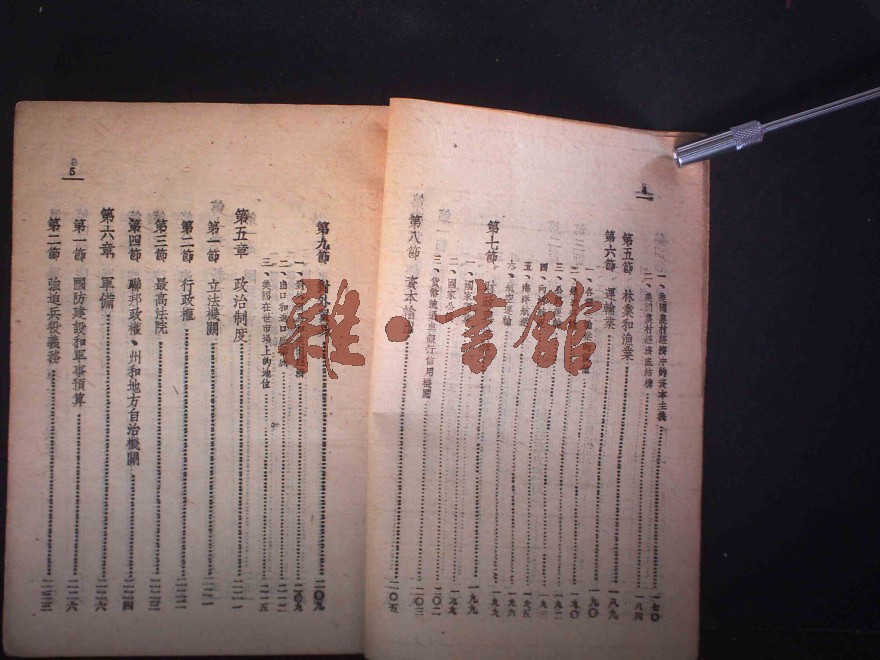 一、美國農村經濟中的資本主義 一七〇
二、美國農村經濟底結構 一八四
第五節 林業和漁業 一八九
第六節 運輸業 一九〇
一九〇
一九二
一九三
五、海洋航運 一九五
六、航空運輸 一九六
第七節 一九九
一、國家 一九九
二、國家 一九九
三、貨幣流通與銀行信用機關 二〇二
第八節 資本輸出 二〇五
第九節 對外 二〇九
二〇九
二、出口和進口 二一二
三、美國在世界市場上的地位 二一五
第五章 政治制度 二二一
第一節 立法機關 二二一
第二節 行政權 二二二
第三節 最高法院 二二三
第四節 聯邦政權、州和地方自治機關 二二四
第六章 軍備 二二六
第一節 國防建設和軍事預算 二二六
第二節 強迫兵役義務 二三三
5
雜·書館